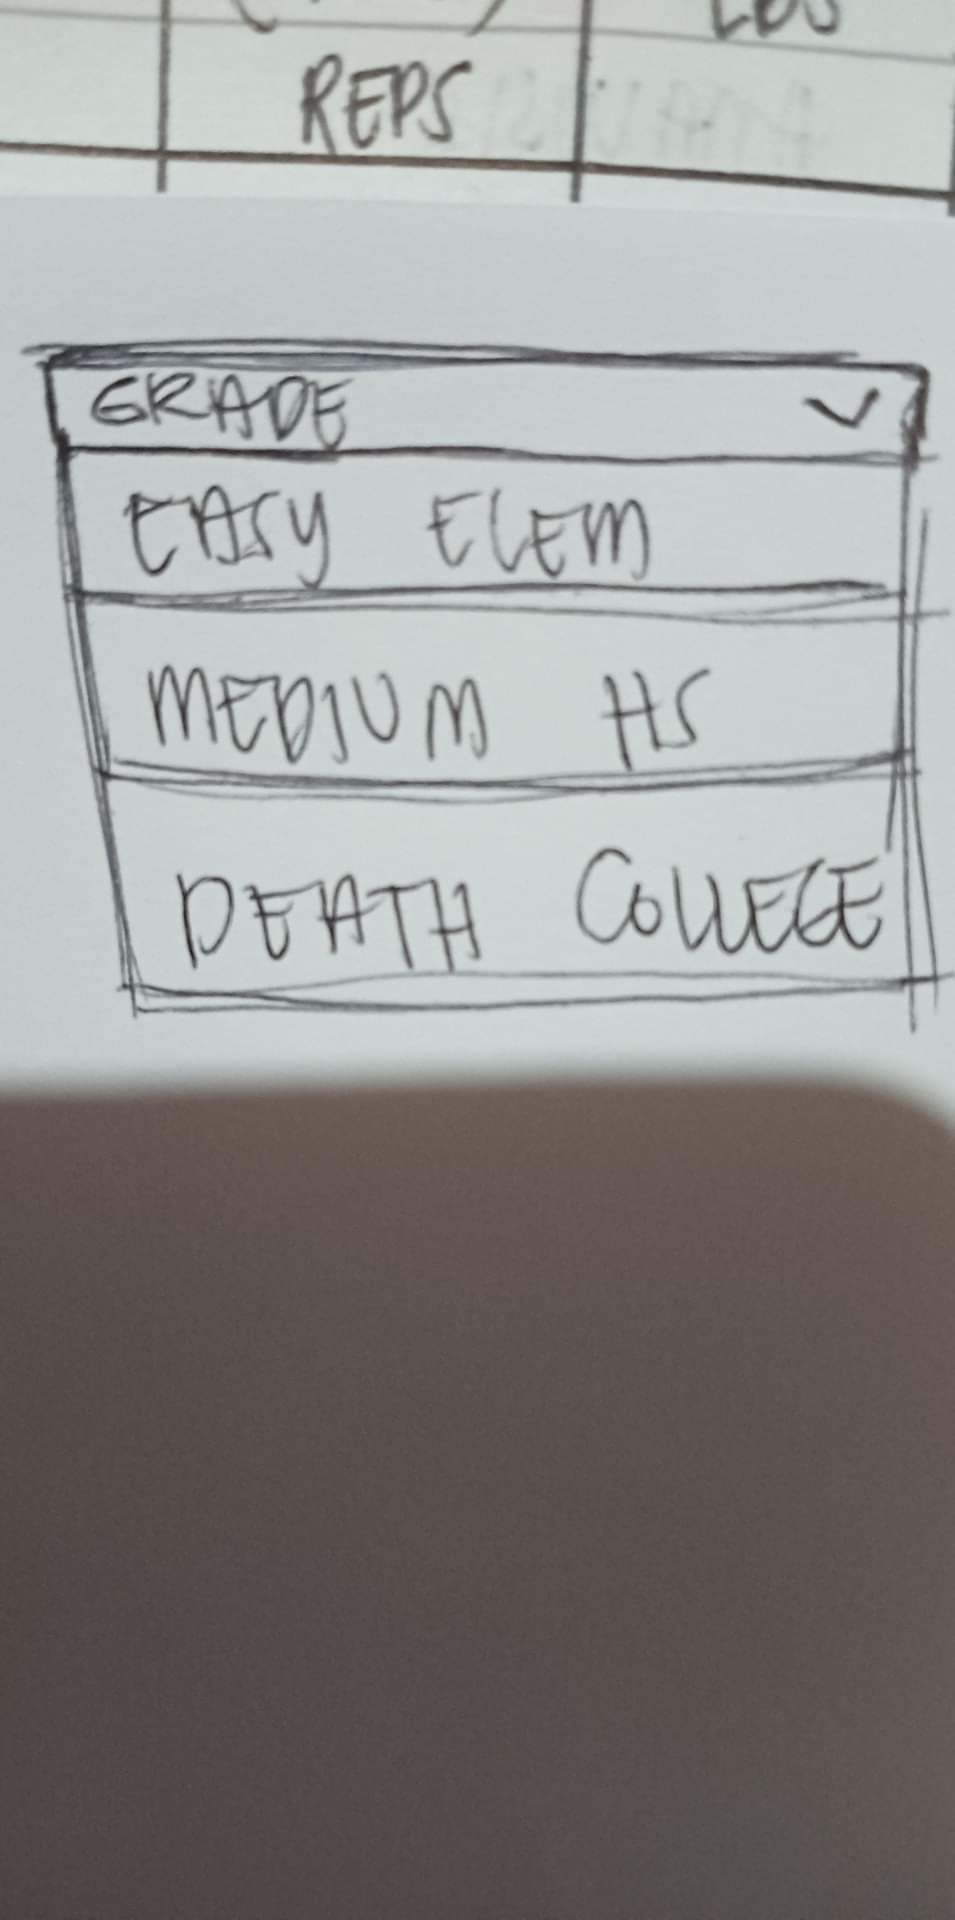 REPS
GRADE
EASY ELEM
MEDIUM HS
DEATH COLLEGE